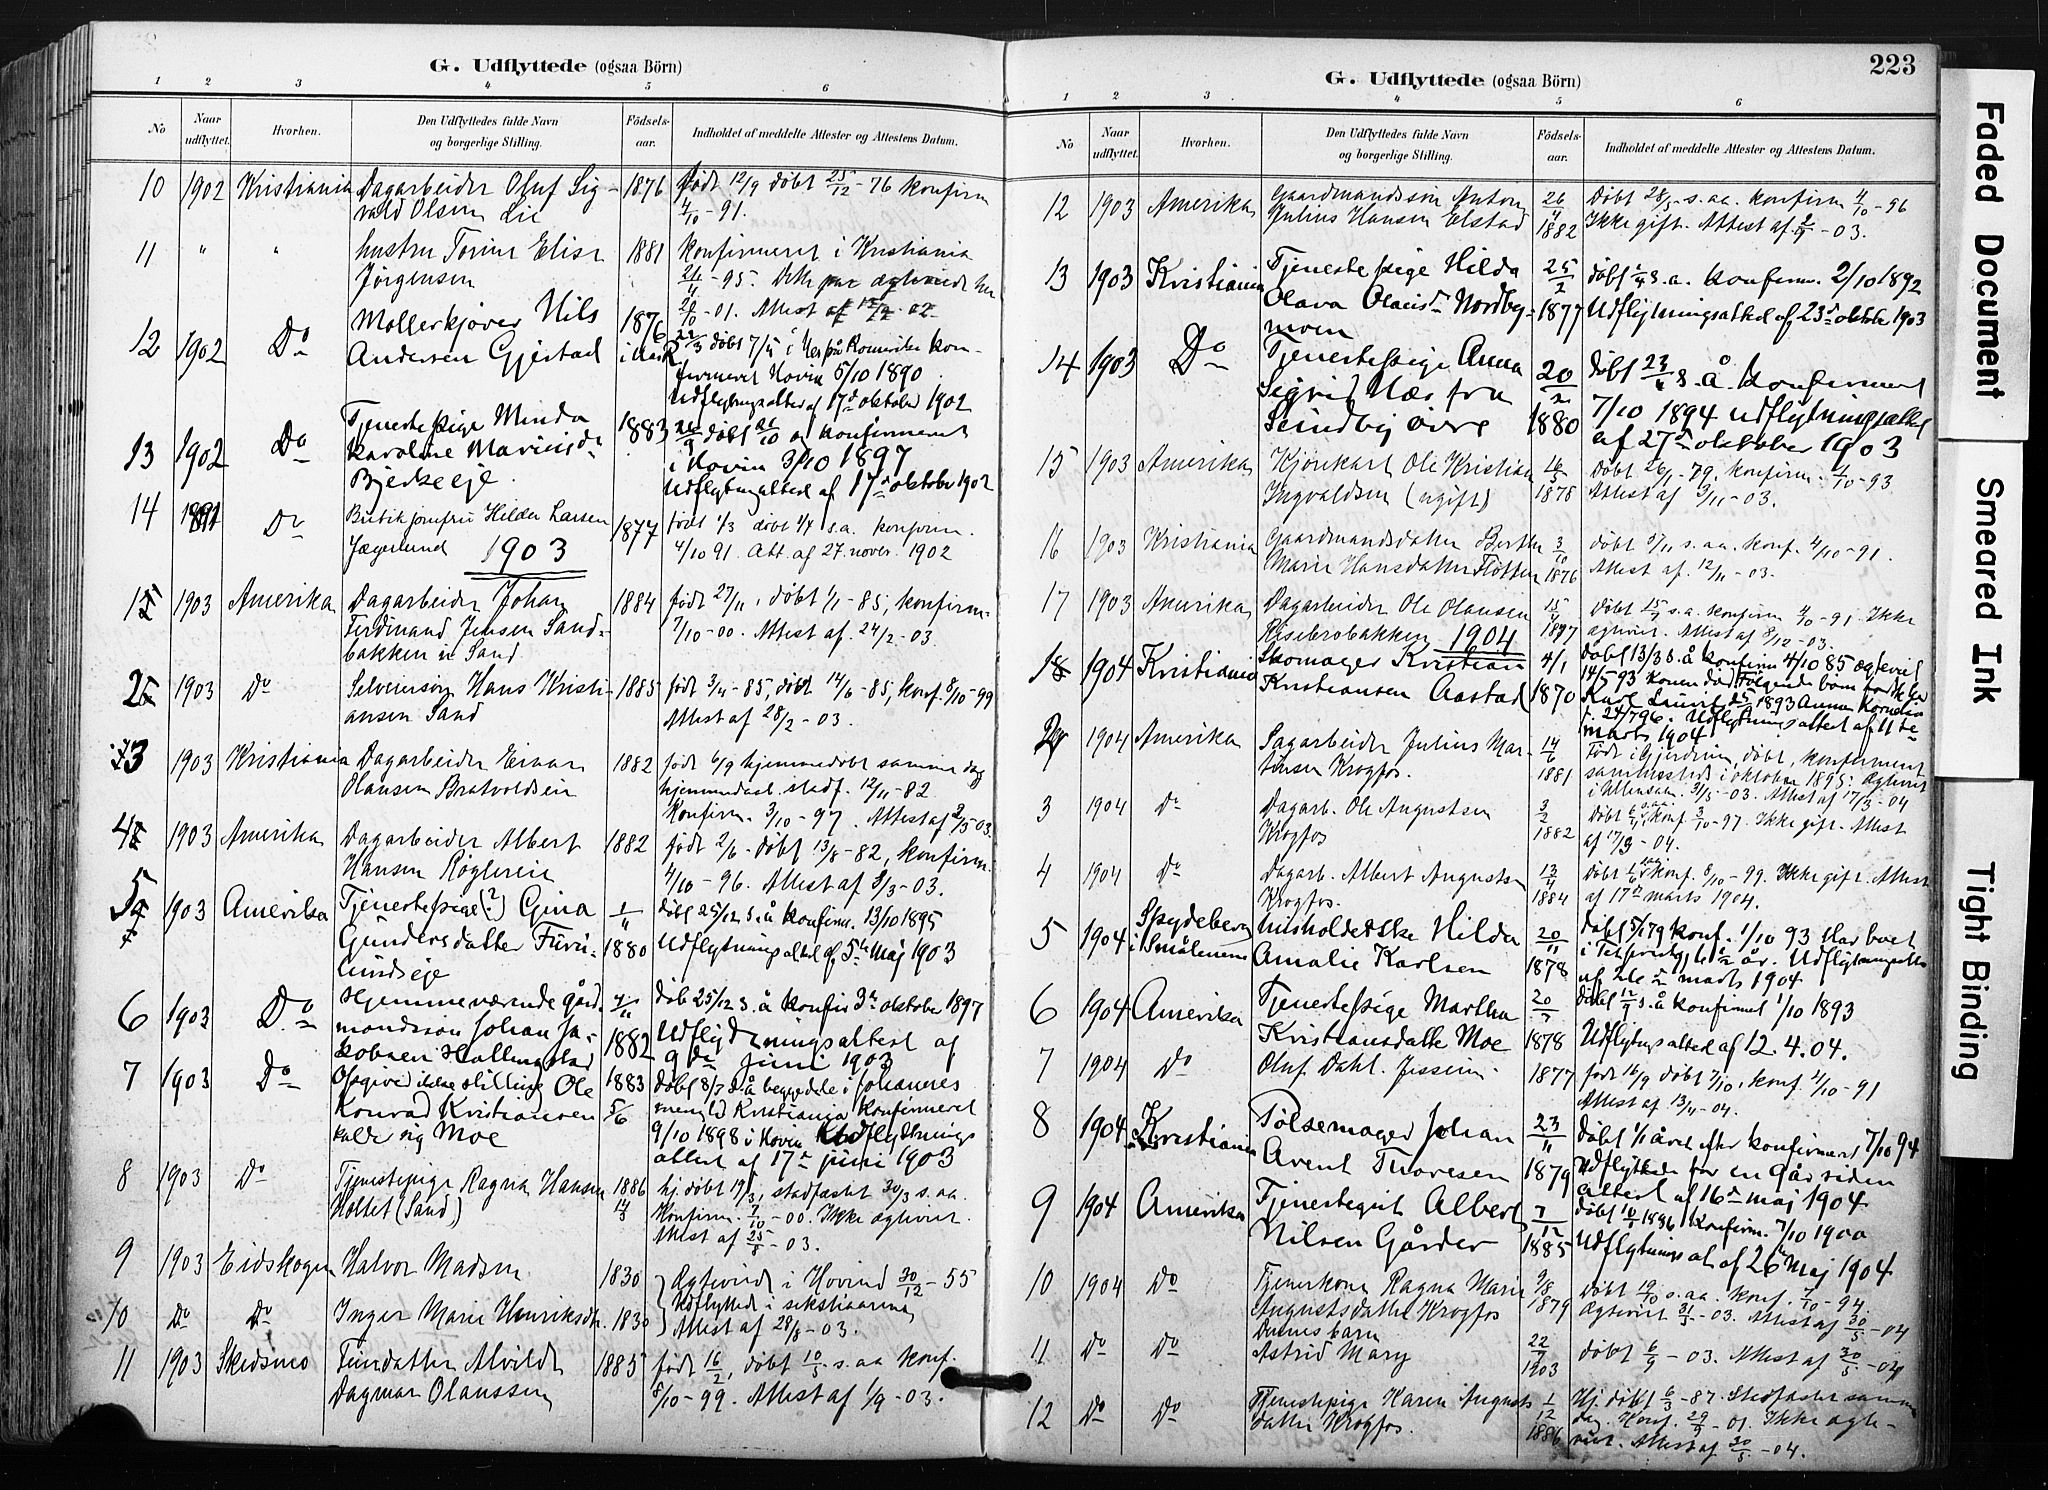 G. Udflyttede (ogsaa Börn)
1 2 3 4 5 6
No
Naar udflyttet.
Hvorhen.
Den Udflyttedes fulde Navn og borgerlige Stilling.
Födsels-aar.
Indholdet af meddelte Attester og Attestens Datum.
10 1902 Kristiania Dagarbeider Oluf Sig- 1876 Født 12/9 døbt 25/12 - 76 konfirm
vald Olsen Lie 4/10 - 91.
11 " " hustru Elise 1881 konfirmeret i Kristiania
Jørgensen 26/4 - 95.
20/10 - 01. Attest af
12 1902 Do Møllerkjører Nils 1876
Andersen Gjestad døbt 7/5 i Nes på Romerike kon-
firmeret Hovin 5/10 1890
Udflytngsattest af 17de oktober 1902
13 1902 Do Tjenestepige Minda 1883 26/9 døbt 21/10 og konfirmeret
Karoline Mariusdr i Hovin 3/10 1897
Bjerkeeje. Udflytngattest af 17de oktober 1902
14 Do Butikjomfru Hilda Larsen 1877 født 1/3 døbt 1/4 s.a. konfirm.
Jægerlund 4/10 91. Att. af 27. novbr. 1902
1903
1 1903 Amerika Dagarbeider Johan 1884 født 27/11, døbt 1/1 - 85, konfirm.
Ferdinand Jensen Sand- 7/10 - 00. Attest af 24/2 - 03.
bakken u. Sand.
2 1903 Do Selveiersøn Hans Kristi- 1885 født 3/4 - 85, døbt 14/6 - 85, konf. 8/10 - 99
ansen Sand Attest af 28/2 - 03.
3 1903 Kristiania Dagarbeider Einar 1882 født 6/9 hjemmedøbt samme dag
Olausen Bratvoldseie hjemmedaab stadf. 12/11 - 82
konfirm. 3/10 - 97. Attest af 2/5 03.
4 1903 Amerika Dagarbeider Albert 1882 født 2/6 - døbt 13/8 - 82, konfirm.
Hansen Røglereie 4/10 - 96. Attest af 3/3 - 03.
5 1903 Amerika Tjenestepige (?) Gina 1/11 døbt 25/12 s. å konfirm. 13/10 1895
Gundersdatter Furu- 1880 Udflytningsattest af 5te Maj 1903
lundseje
6 1903 Do Hjemmeværende gård- døb 25/12 s. å konfir 3de oktober 1897
mandssøn Johan Ja- 1882 Udflytningsattest af
kobsen Hallingstad 9de Juni 1903
7 1903 Do Opgived ikke stilling Ole 1883 døbt 8/7 s. å begge dele i Johannes
Konrad Kristiansen 5/6 menighd Kristiania konfirmeret
kalder sig Moe 9/10 1898 i Hovin Udflytnings
attest af 17de juni 1903
8 1903 Do Tjenestepige Ragna Hansen 1886 hj. døbt 19/3, stadfæstet 30/3 s. aa.
Holtet (Sand) Konfirm. 7/10 - 00. Ikke ægteviet.
Attest af 25/8 - 03.
9 1903 Eidskogen Halvor Madsen 1830 Ægteviet i Hovind 30/12 - 55
Udflyttede i sekstiaarene
10 Do Do Inger Marie Henriksdtr. 1830 Attest af 28/8 - 03.
11 1903 Skedsmo Alvilde 1885 født 16/2, døbt 10/5 s. aa konf.
Dagmar Olaussen 8/10 - 99. Attest af 1/9 - 03.
G. Udflyttede (ogsaa Börn)
223
1 2 3 4 5 6
No
Naar udflyttet.
Hvorhen.
Den Udflyttedes fulde Navn og borgerlige Stilling.
Födsels-aar.
Indholdet af meddelte Attester og Attestens Datum.
12 1903 Amerika Gaardmandssøn Anton 26/4 Døbt 28/5 - s. aa. konfirm 4/10 - 96
Julius Hansen Elstad 1882 Ikke gift. Attest af 2/9 - 03.
13 1903 Kristiania Tjenestepige Hilda 25/2 døbt s. a. konfirm. 2/10 1892
Olava Olausdr Nordby- 1877 Udflytningsattest af 23de oktobr 1903
moen
14 1903 Do Tjenestepige Anna 20/2 døbt s. å. konfirmert
Sigrid Næs fra 7/10 1894 udflytningsattest
Sundby øvre 1880 af 27de oktober 1903
15 1903 Amerika Kjørekarl Ole Kristian Døbt 26/1 - 79. konfirm. 4/10 - 93
Ingvaldsen (ugift) 1878 Attest af 3/11 - 03.
16 1903 Kristiania Gaardmandsdatter Berthe 3/10 døbt 5/11 s. aa. konf. 4/10 - 91.
Marie Hansdatter Fløtten 1876 Attest af. 12/11 - 03.
17 1903 Amerika Dagarbeider Ole Olausen Døbt s. a. konfirm 4/10 - 91. Ikke
Risebrobakken ægteviet. Attest af 8/12 - 03.
1904
1 1904 Kristiania Skomager Kristian 4/1 døbt 13/3 s. å konfirm 4/10 85 ægteviet
Kristiansen Aastad 1870 14/5 93 konen død. Følgende børn
1893 Anna Kornelia
f. 24/7 96. Udflytningsattest af 11te
marts 1904
2 1904 Amerika Sagarbeider Julius Mar- 14/6 Født i Gjerdrum, døbt, konfirmert
tinsen Krogfos. 1881 sammesteds i oktober 1895. Ægteviet
i Ullensak. 31/5 - 03. Attest af 17/3 - 04
3 1904 Do Dagarb. Ole Augustsen 3/2 Døbt konf. 3/10 - 97. Ikke gift. Attest
Krogfos 1882 af 17/3 - 04.
4 1904 Do Dagarb. Albert Augustsen 13/4 Døbt konf. 8/10 - 99. Ikke gift. Attest
Krogfos. 1884 af 17de marts 1904.
5 1904 Spydeberg Hilda 20/11 døbt 5/1 79 konf. 1/10 93 Har boet
i Smålenene Amalie Karlsen 1878 6 1/2 år. Udflytningsattest
marts 1904
6 1904 Amerika Tjenestepige Martha 20/7 døbt 12/9 s. å konfirmet 1/10 1893
Kristiansdatte Moe 1878 Udflytngs attest af 12. 4. 04.
7 1904 Do Oluf Dahl. 1877 født 16/9 døbt 7/10, konf. 4/10 - 91
Attest af. 13/4 - 04.
8 1904 Kristiania Pølsemager Johan 23/11 døbt 1/1 året efter konfirmert 7/10 94
Arent Thoresen 1879 Udflyttede for en går siden
attest af 16de maj 1904
9 1904 Amerika Tjenestegut Albert 7/12 døbt 10/1 1886 konfirm. 7/10 1900
Nilsen Gårder 1885 Udflytnings at. af 26de Maj 1904
10 1904 Do Tjenerkone Ragna Marie 9/8 døbt 19/10 s. aa. konf. 7/10 - 94.
Augustsdatter Krogfos 1879 Ægteviet 31/5 - 03. Attest af 30/5 - 04
Dennes barn
11 Do Do Astrid Mary 22/7 1903 døbt 6/9 - 03. Attest af 30/5 - 04
12 Do Do Tjenestepige Karen Augusts 1/12 Hj. døbt 6/3 - 87. Stadfæstet samme
datter Krogfos. 1886 dag. Konf. 29/9 - 01. Ikke ægte-
viet. Attest af 30/5 - 04.
Faded Document
Smeared Ink
Tight Binding